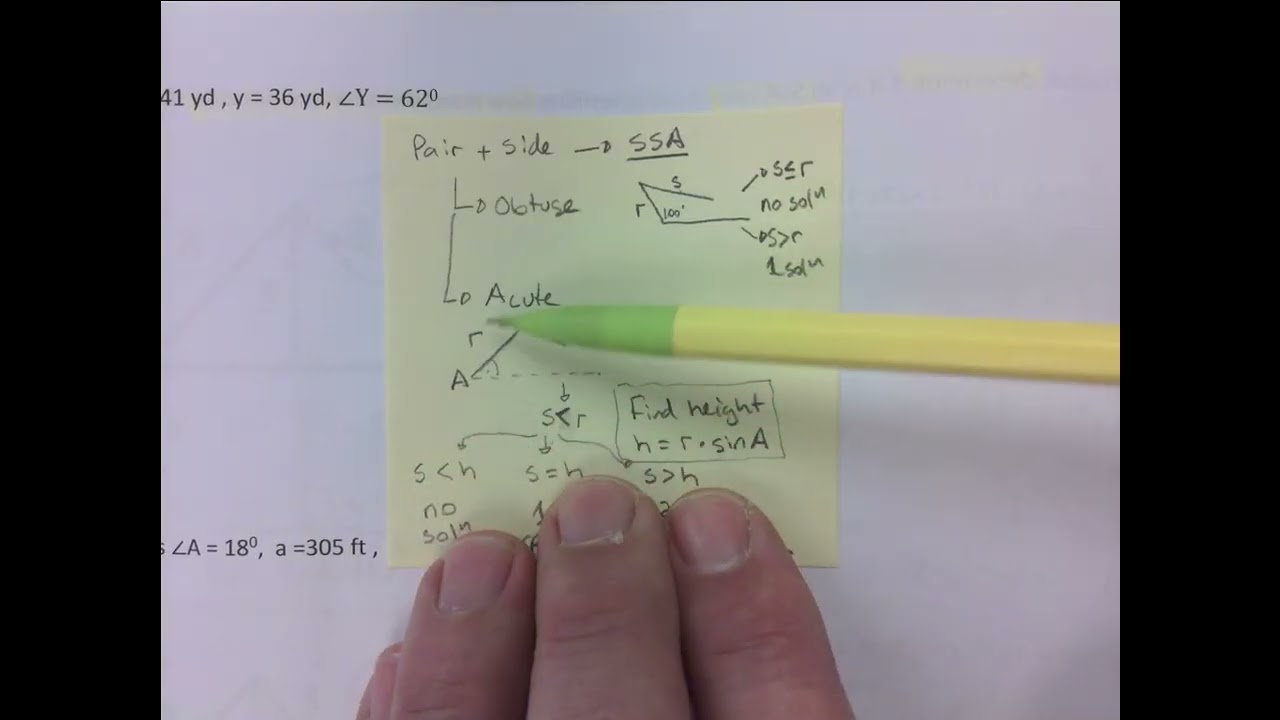 41 yd , y = 36 yd, ∠Y = 62⁰
Pair + side → SSA
s
s≤r
no solⁿ
r
100°
s>r
1 solⁿ
Obtuse
Acute
r
A
s<r
Find height
h = r·sinA
s < h
s = h
s > h
no
solⁿ
1
2
∠A = 18⁰, a =305 ft ,